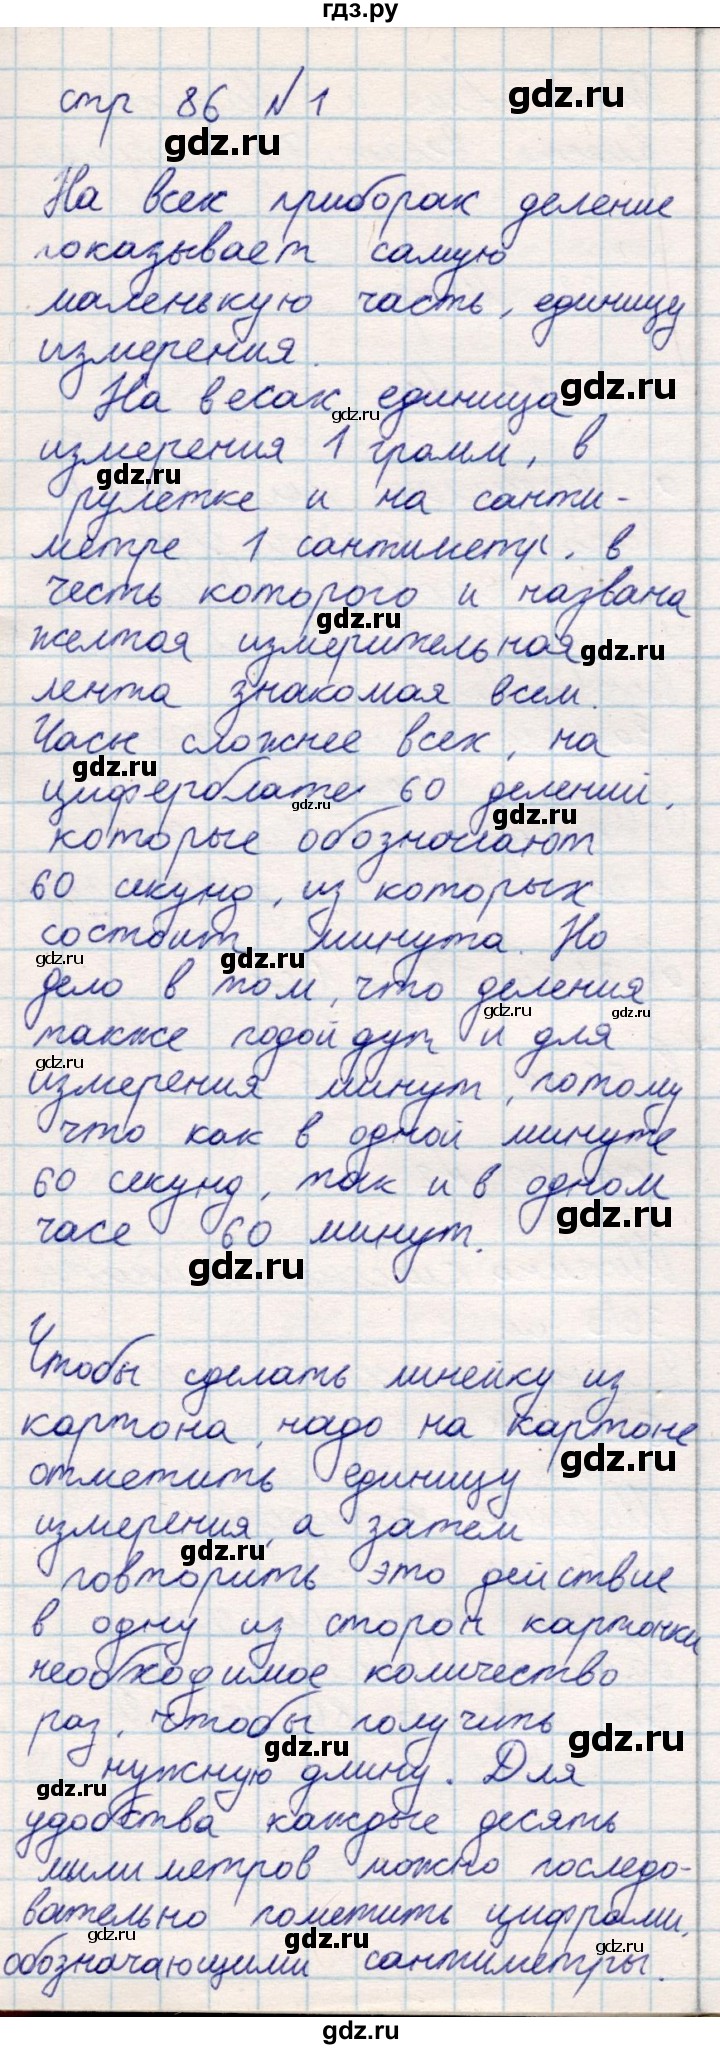 гдз.ру
стр 86 №1
На всех приборах деление
показывает самую
маленькую часть, единицу
измерения.
На весах единица
измерения 1 грамм, в
рулетке и на санти-
метре 1 сантиметр, в
честь которого и названа
желтая измерительная
лента знакомая всем.
Часы сложнее всех, на
циферблате 60 делений,
которые обозначают
60 секунд, из которых
состоит минута. Но
дело в том, что деления
также подойдут и для
измерения минут, потому
что как в одной минуте
60 секунд, так и в одном
часе 60 минут.
Чтобы сделать линейку из
картона, надо на картоне
отметить единицу
измерения, а затем
повторить это действие
в одну из сторон карточки
необходимое количество
раз, чтобы получить
нужную длину. Для
удобства каждые десять
милиметров можно последо-
вательно пометить цифрами,
обозначающими сантиметры.
gdz.ru